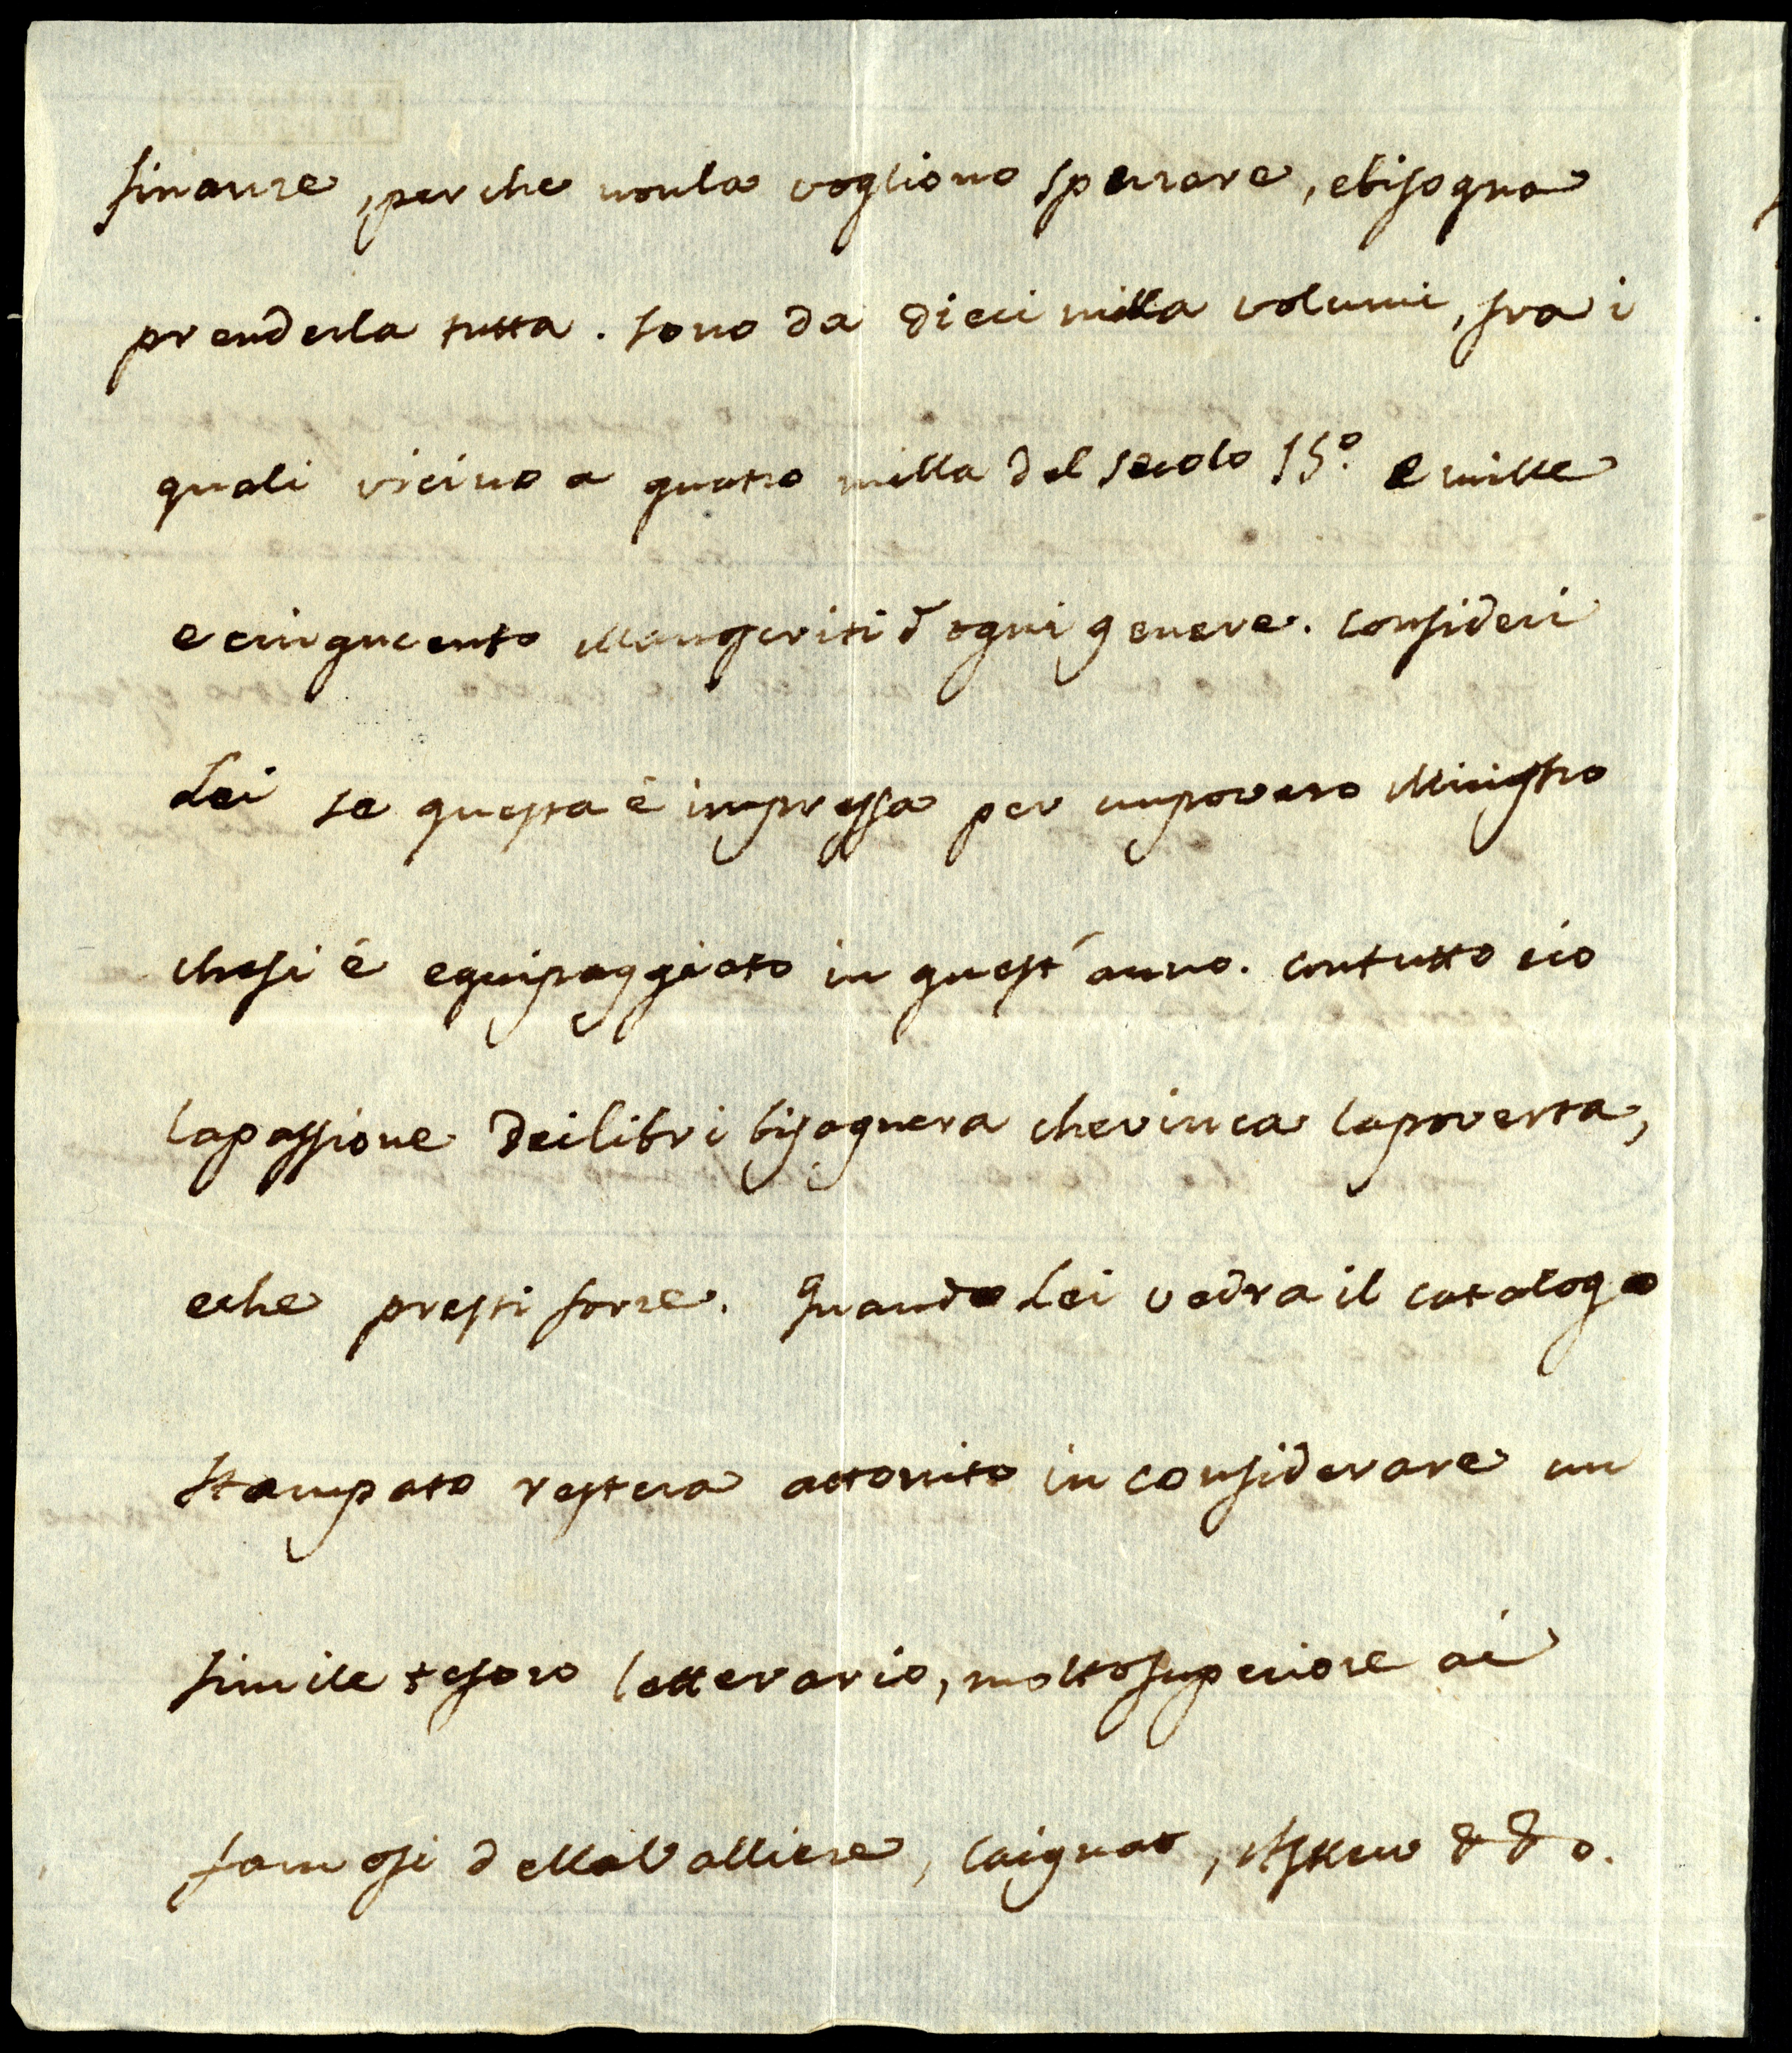 finanze, perche nonla vogliono spezzare, ebisogna
prenderla tutta. sono da dieci milla volumi, fra i
quali vicino a quatro milla del secolo 15º. e mille
e cinquecento Manoscriti d'ogni genere. Consideri
Lei se questa é impressa per unpovero Ministro
chesi é equipaggiato in quest'anno. contutto cio
lapassione deilibri bisognera chevinca lapoverta,
eche presti forze. Quando Lei vedra il catalogo
stampato restera attonito in considerare un
simile tesoro letterario, moltosuperiore ai
famosi dellaValliere, Caignat, Askew & & o.